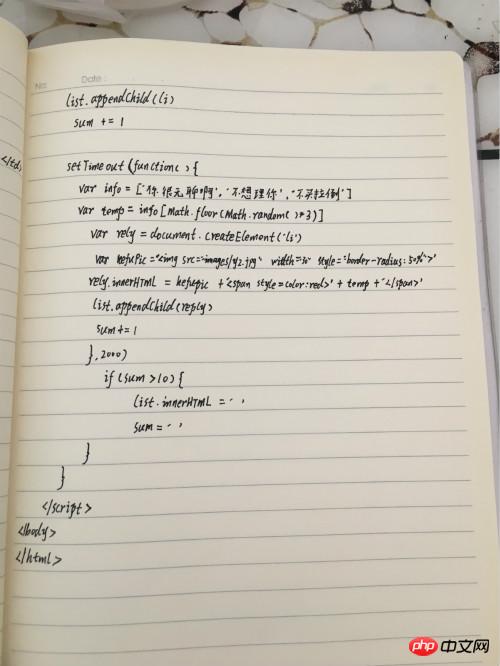 No:
Date:
list.appendChild(li)
sum += 1
</td>
setTimeout(function(){
var info = ['你很无聊啊','不想理你','不买拉倒']
var temp = info[Math.floor(Math.random()*3)]
var rely = document.createElement('li')
var kefuPic = '<img src="images/y2.jpg" width=30 style="border-radius:50%">'
rely.innerHTML = kefupic + '<span style=color:red>' + temp + '</span>'
list.appendChild(reply)
sum+=1
},2000)
if(sum>10){
list.innerHTML = ' '
sum = ' '
}
}
</script>
</body>
</html>
php 中文网